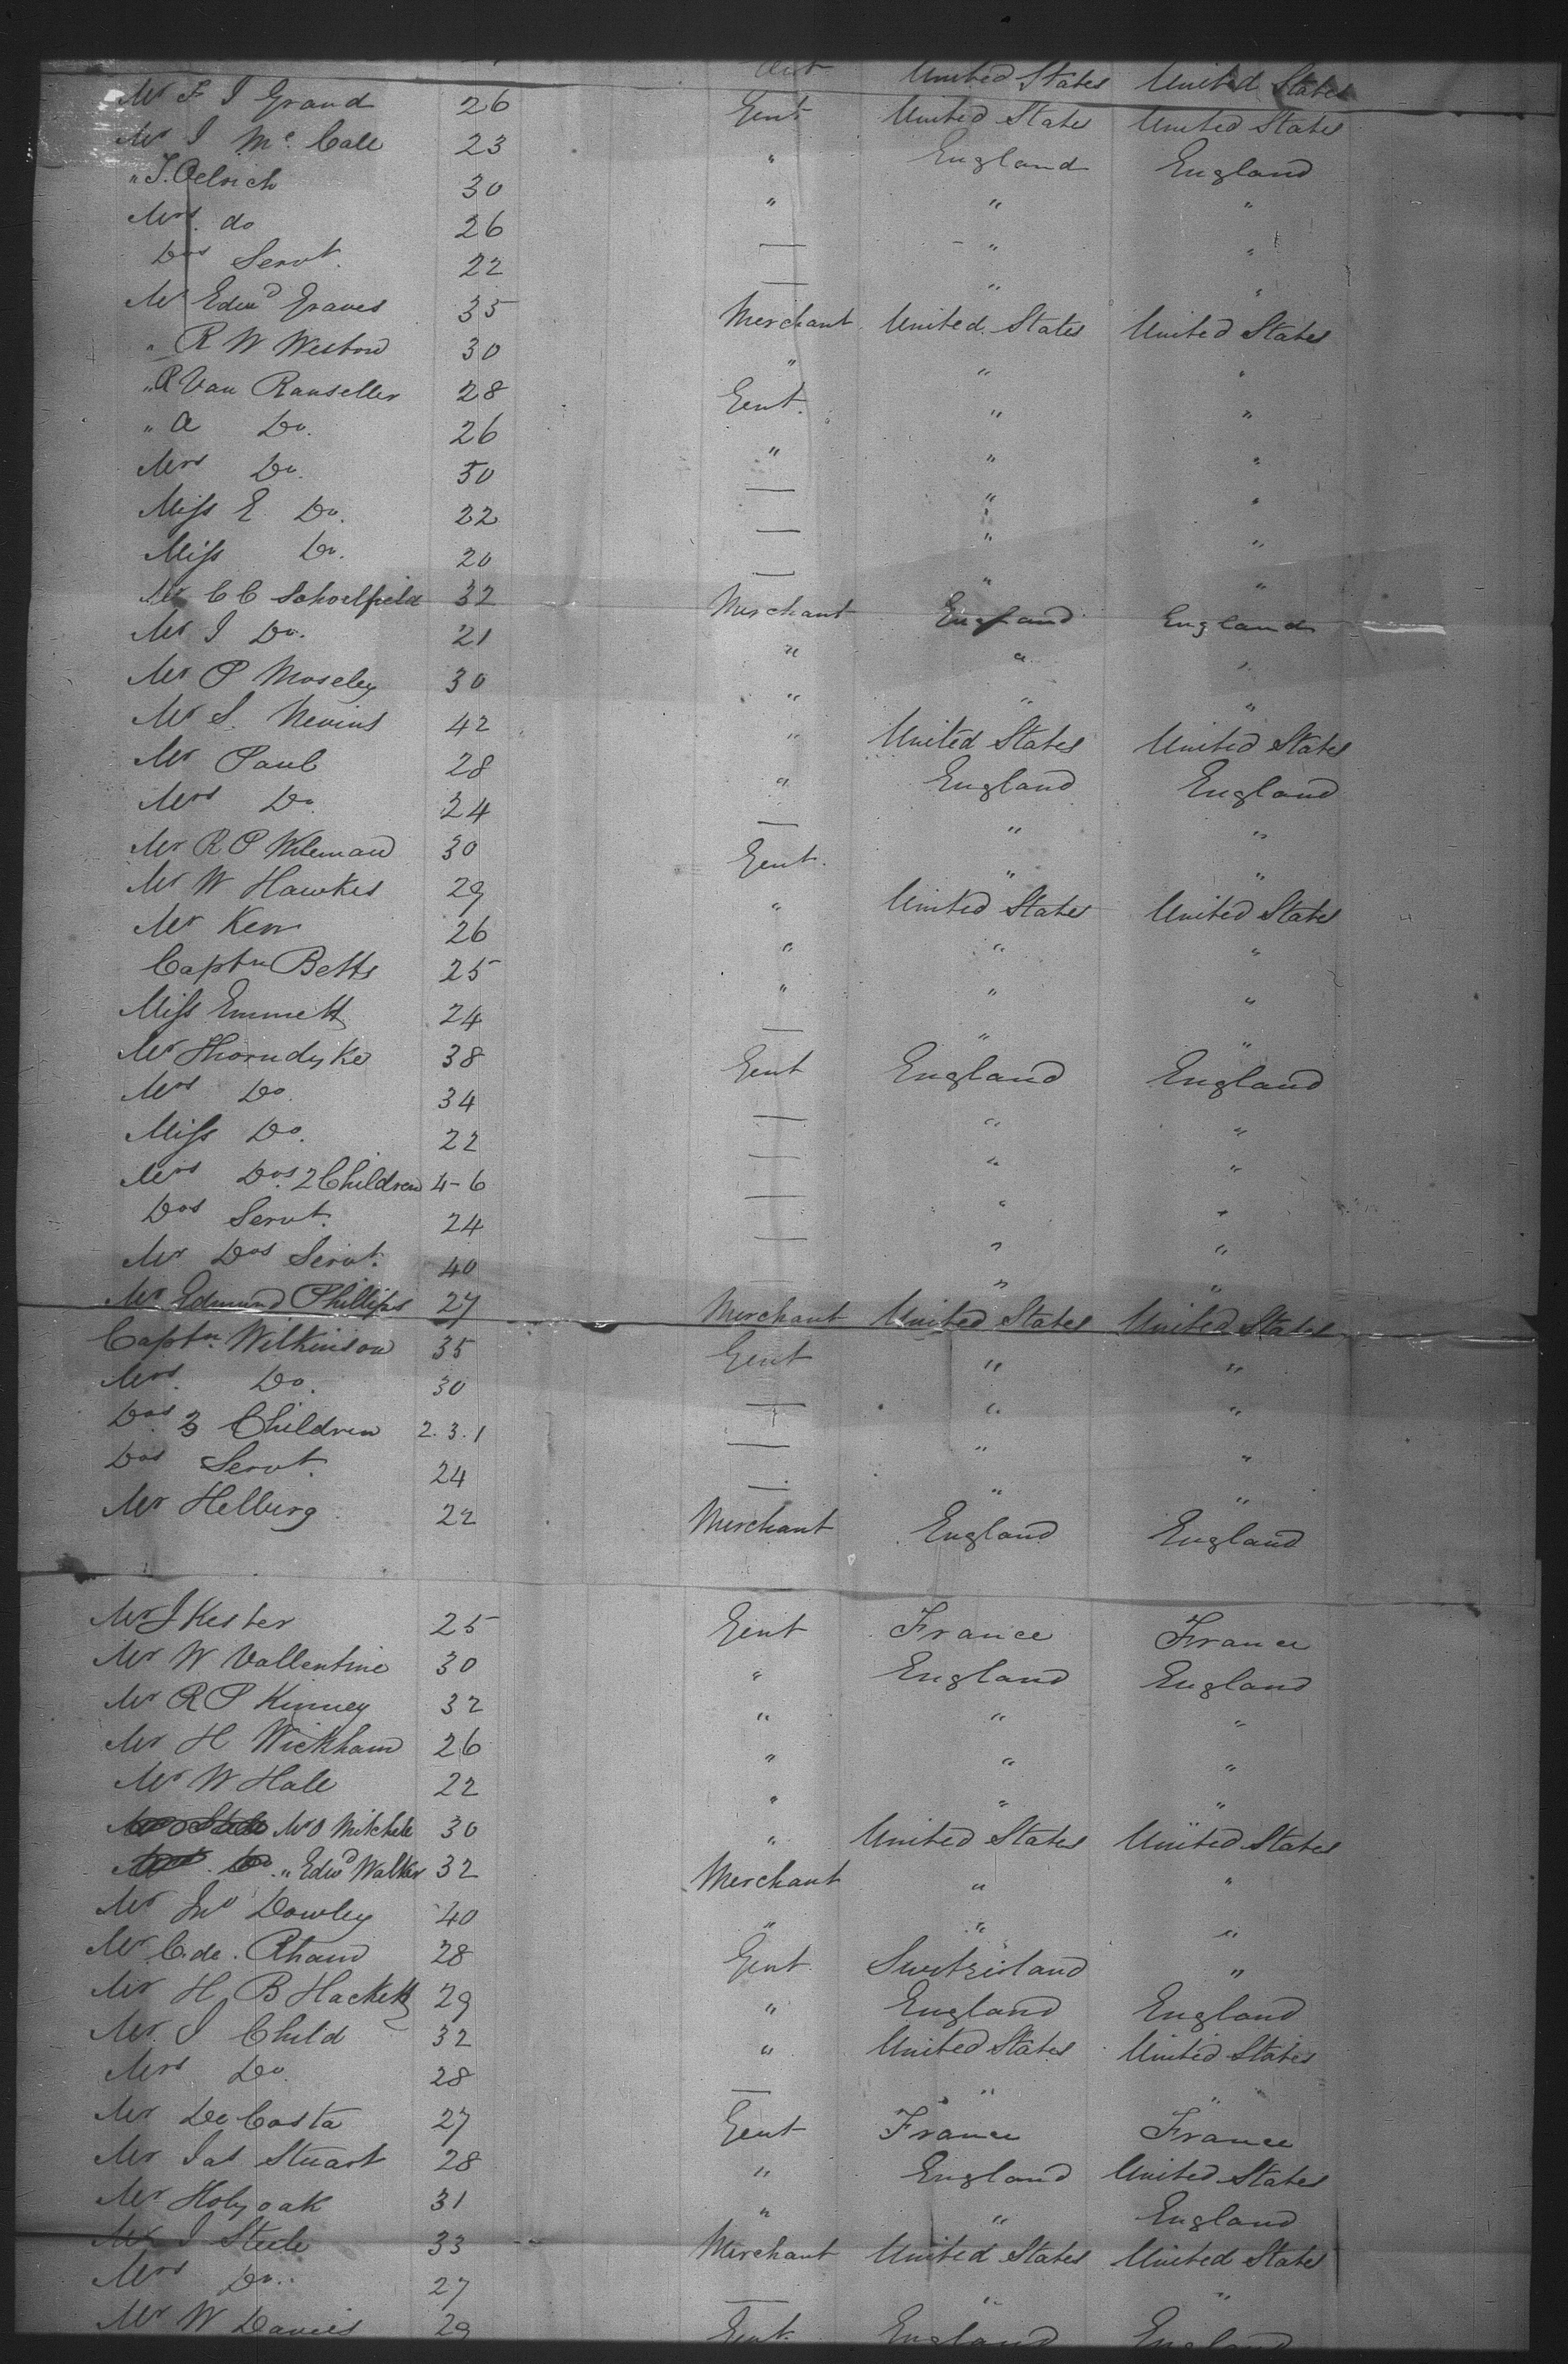 United States United States
Mr F I Grand 26 Gent United States United States
Mr I Mc. Call 23 " England England
" J. Oelrich 30 " " "
Mrs. do 26 — " "
Dos Servt. 22 — " "
Mr Edwd Graves 35 Merchant United States United States
" R W Weston 30 " " "
" P Van Ranseller 28 Gent. " "
" A Do. 26 " " "
Mrs Do. 50 — " "
Miss E Do. 22 — " "
Miss Do. 20 — " "
Mr C C Schoelfield 32 Merchant England England
Mr I Do. 21 " " "
Mr P Moseley 30 " " "
Mr S. Nevins 42 " United States United States
Mr Paul 28 " England England
Mrs Do. 24 — " "
Mr R P Wileman 30 Gent. " "
Mr W Hawkes 29 " United States United States
Mr Kerr 26 " " "
Captn Betts 25 " " "
Miss Emmett 24 — " "
Mr Thorndyke 38 Gent England England
Mrs Do. 34 — " "
Miss Do. 22 — " "
Mrs Dos. 2 Children 4-6 — " "
Dos Servt. 24 — " "
Mr Dos Servt. 40 " "
Mr Edmund Phillips 27 Merchant United States United States
Captn. Wilkinson 35 Gent " "
Mrs. Do. 30 — " "
Dos 3 Children 2.3.1 — " "
Dos Servt. 24 — " "
Mr Helburg 22 Merchant England England
Mr J Kester 25 Gent France France
Mr W Vallentine 30 " England England
Mr R P Kinney 32 " " "
Mr H Wickham 26 " " "
Mr W Hall 22 " " "
Mr O Mitchele 30 " United States United States
" Edwd Walker 32 Merchant " "
Mr Jno Dowley 40 " " "
Mr C. de. Rham 28 Gent Switzerland "
Mr H B Hackett 29 " England England
Mr. I Child 32 " United States United States
Mrs Do. 28 — " "
Mr De Costa 27 Gent France France
Mr Jas Stuart 28 " England United States
Mr Holyoak 31 " " England
Mr I Steele 33 Merchant United States United States
Mrs Do. 27 — " "
Mr W Davies 29 Gent. England England